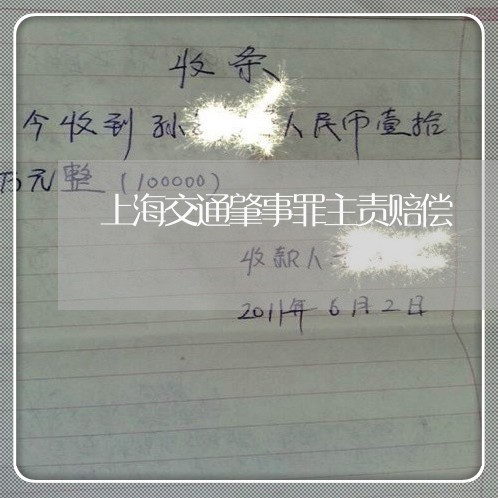 收条
今收到孙 人民币壹拾
万元整(100000)
上海交通肇事罪主责赔偿
收款人
2011年6月2日